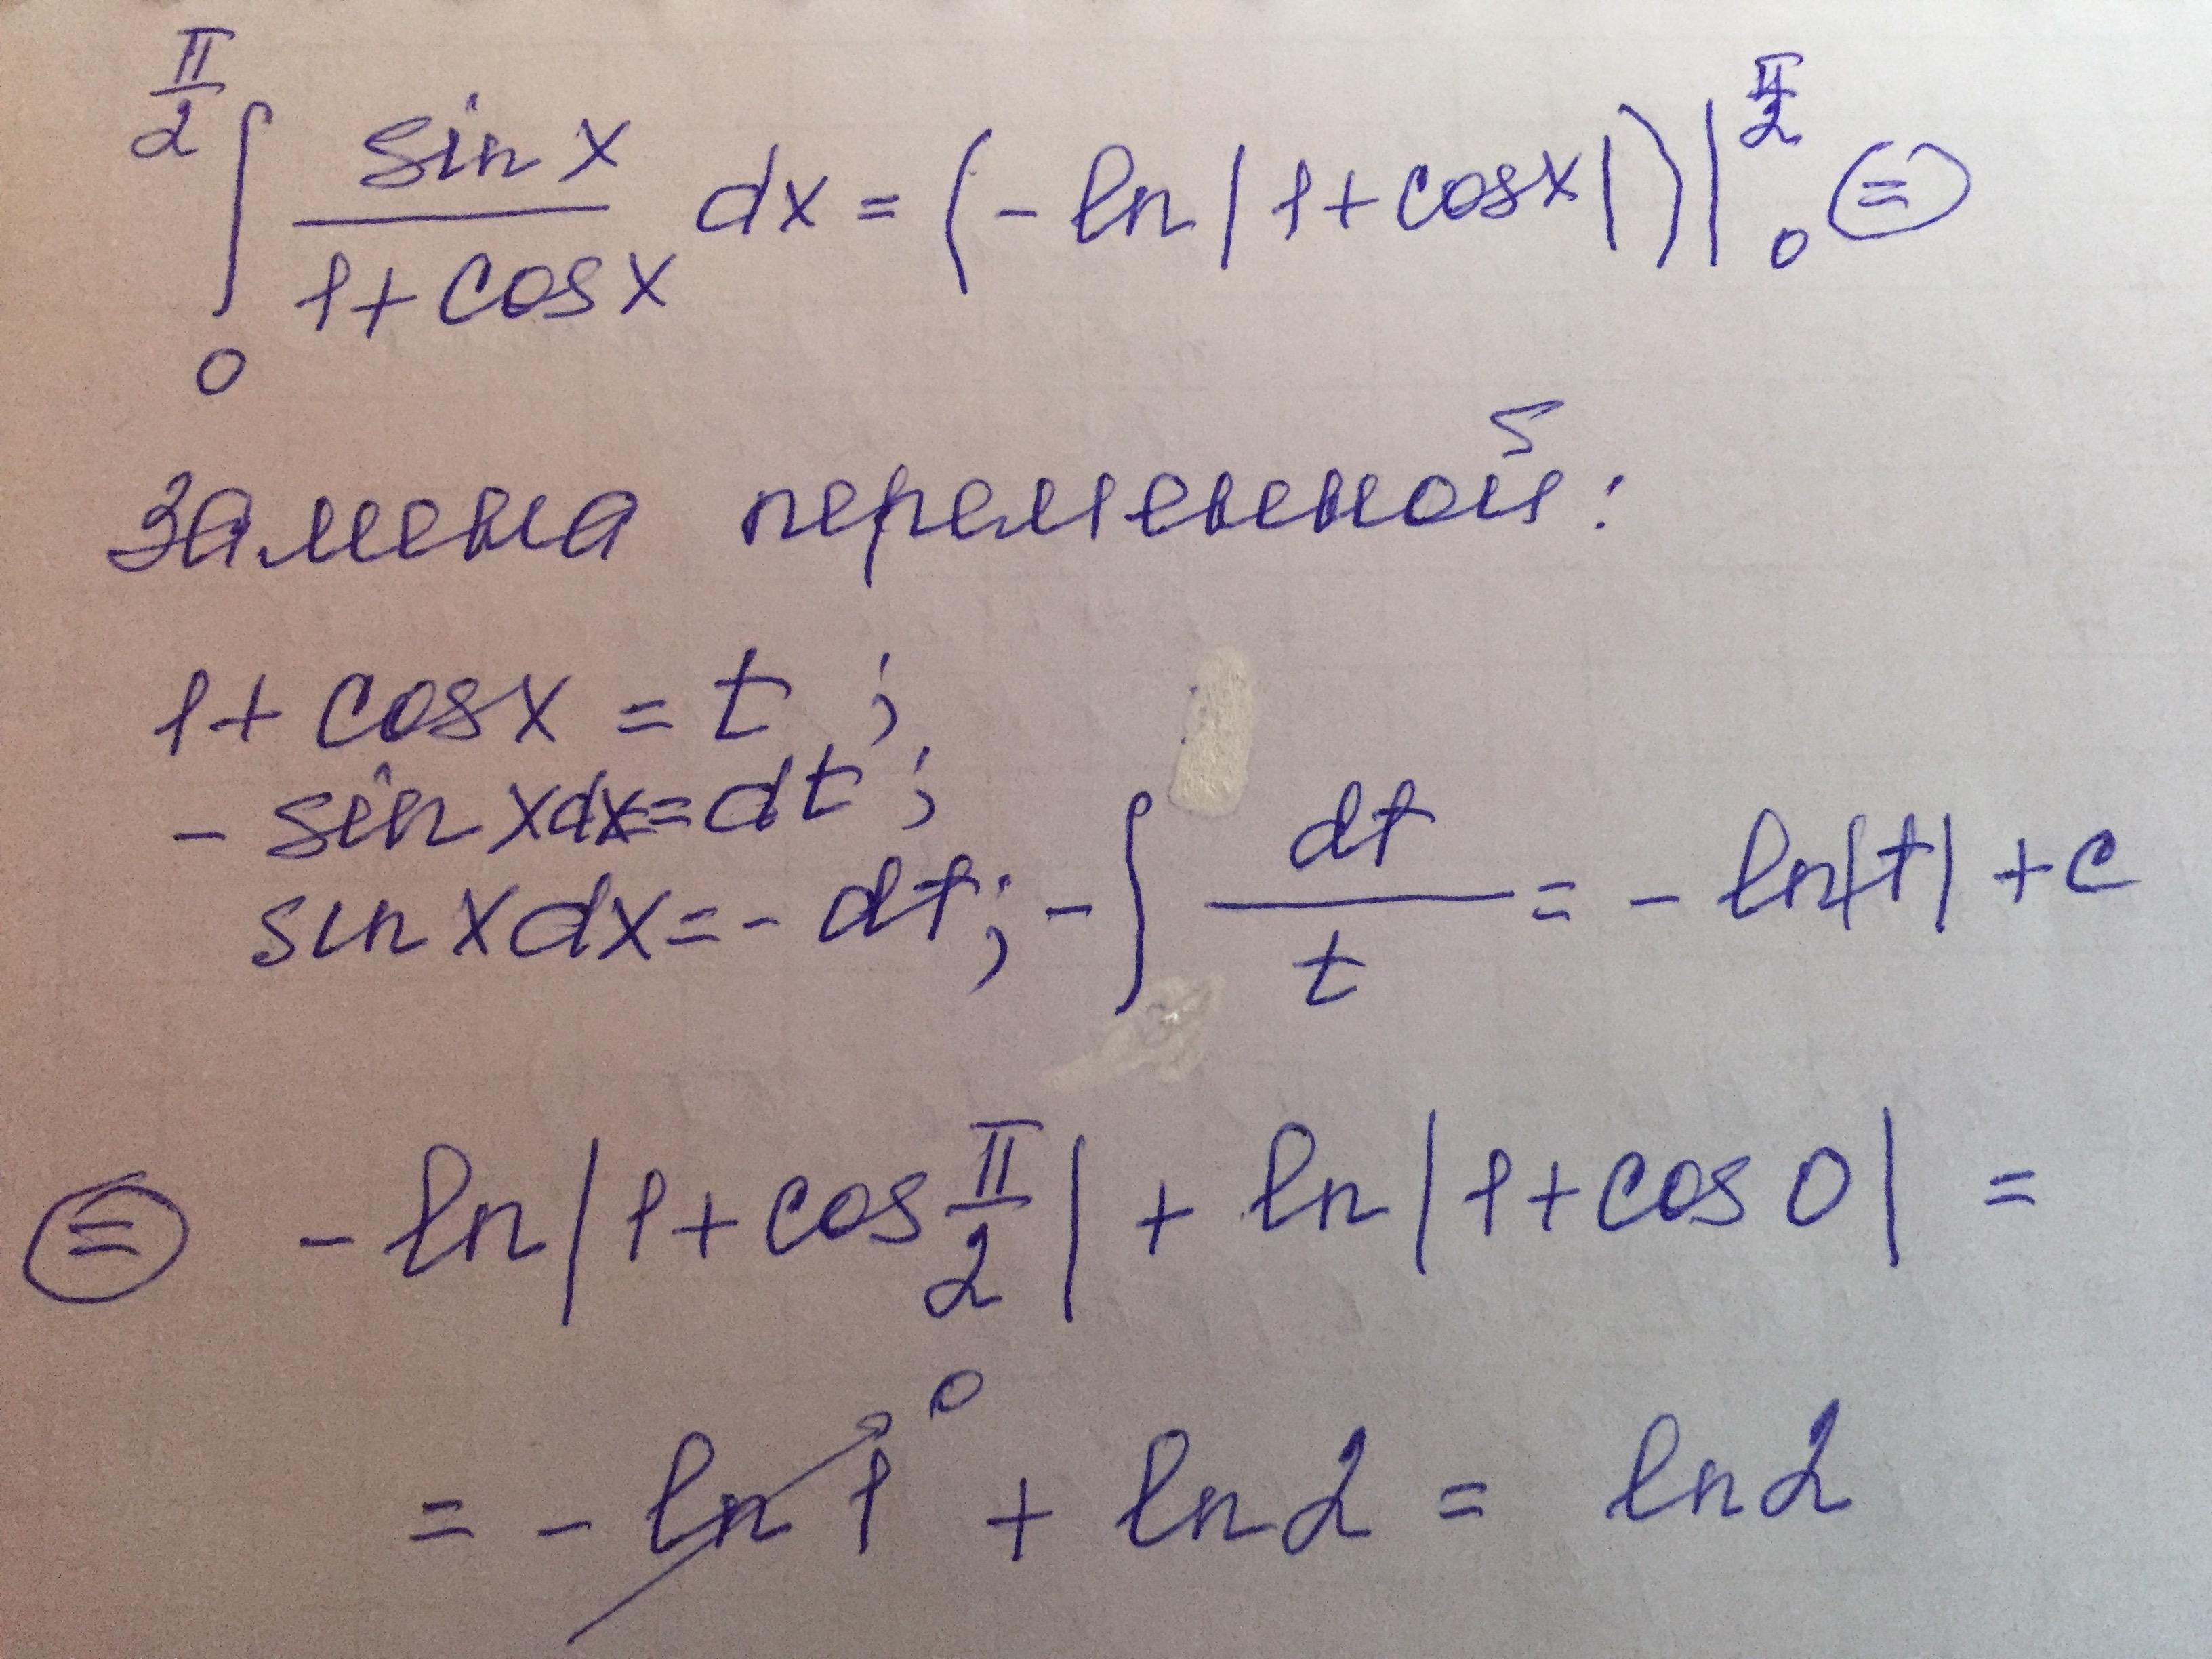 ∫₀^{π/2} sin x / (1 + cos x) dx = (- ln |1 + cos x|) |₀^{π/2} ⊜
Замена переменной:
1 + cos x = t ;
- sin x dx = dt ;
sin x dx = - dt ; - ∫ dt / t = - ln |t| + C
⊜ - ln |1 + cos π/2| + ln |1 + cos 0| =
= - ln 1 ↗ 0 + ln 2 = ln 2